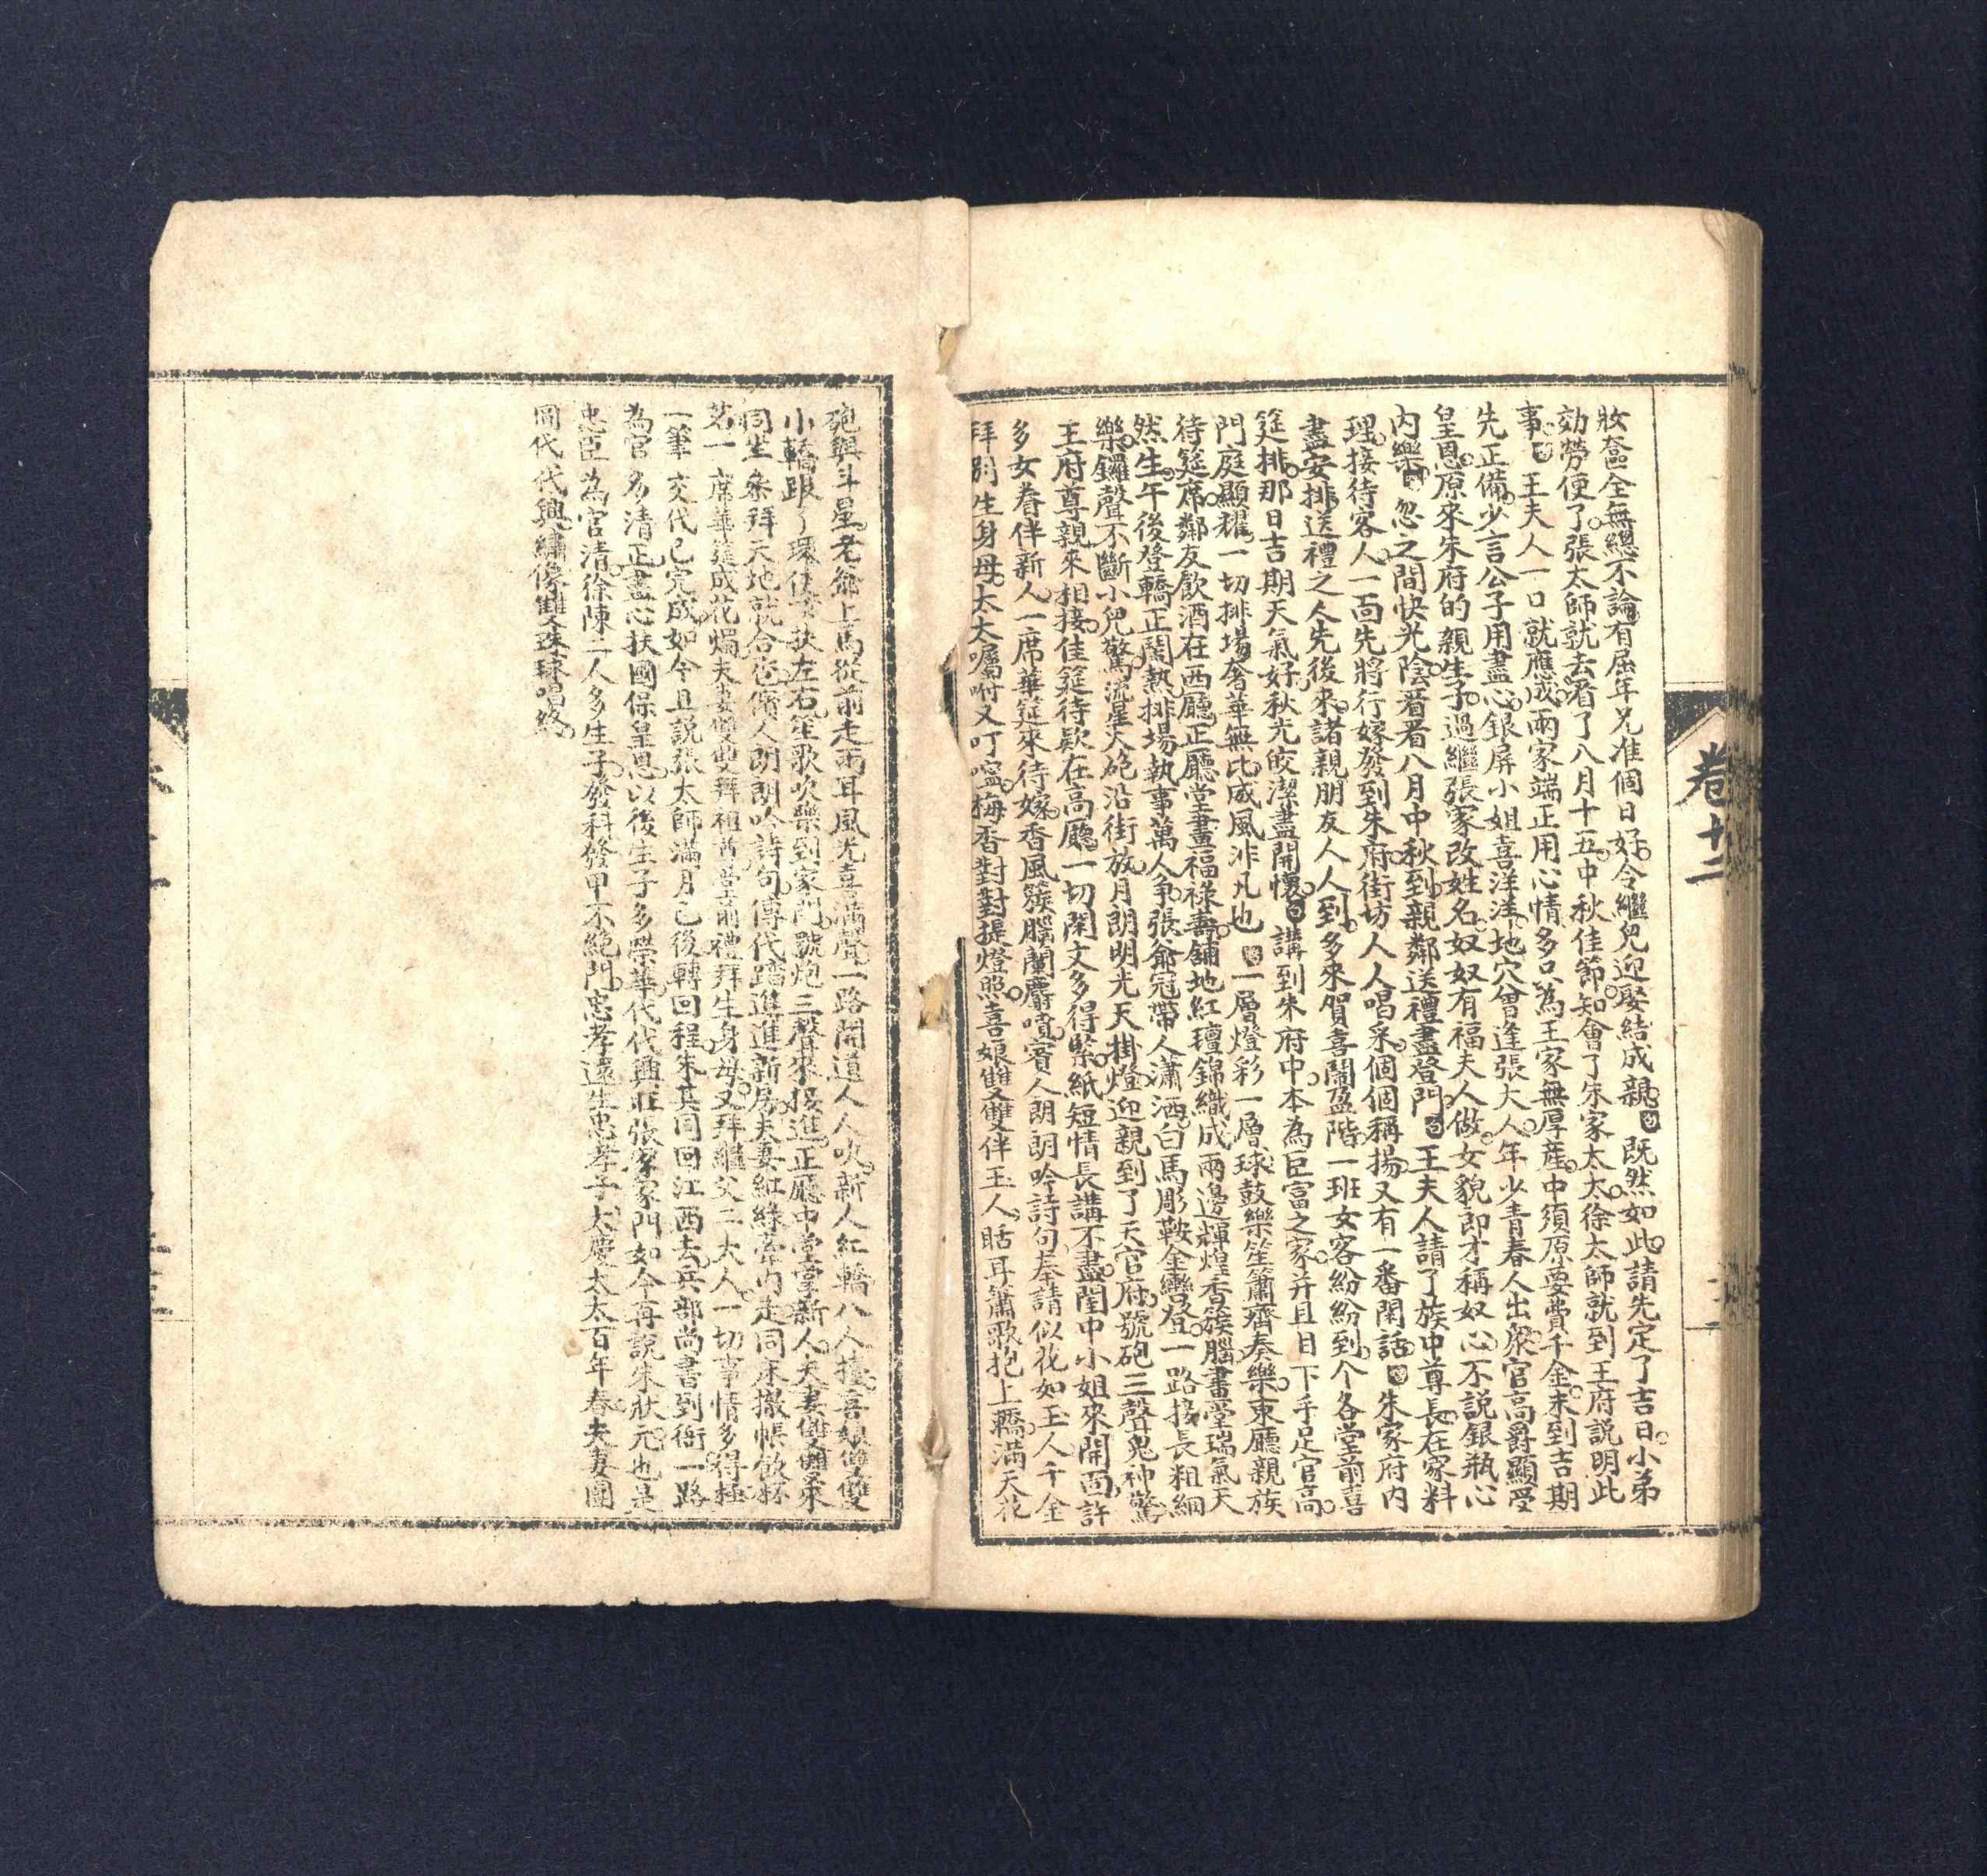 卷十二
妝奩全無總不論有屈年兄准個日好令繼兒迎娶結成親 既然如此請先定了吉日小弟
効勞便了張太師就去看了八月十五中秋佳節知會了朱家太太徐太師就到王府説明此
事 王夫人一口就應成兩家端正用心情多只為王家無厚産中須原要費千金未到吉期
先正備少言公子用盡心銀屏小姐喜洋洋地穴曾逢張大人年少青春人出衆官高爵顯受
皇恩原來朱府的親生子過繼張家改姓名奴奴有福夫人做女貌郎才稱奴心不説銀瓶心
内樂 忽之間快光陰看看八月中秋到親鄰送禮盡登門 王夫人請了族中尊長在家料
理接待客人一面先將行嫁發到朱府街坊人人唱采個個稱揚又有一番閑話 朱家府内
盡安排送禮之人先後來諸親朋友人人到多來賀喜鬧盈階一班女客紛紛到个各堂前喜
筵排那日吉期天氣好秋光皎潔盡開懷 講到朱府中本為巨富之家并且目下手足官高
門庭顯耀一切排場奢華無比威風非凡也 一層燈彩一層球鼓樂笙簫齊奏樂東廳親族
待筵席鄰友飲酒在西廳正廳堂畫福祿壽鋪地紅氊錦織成兩邊輝煌香簇腦書堂瑞氣天
然生午後登轎正鬧熱排場執事萬人爭張爺冠帶人瀟洒白馬彫鞍金轡登一路接長粗細
樂鑼聲不斷小兒驚流星大炮沿街放月朗明光天掛燈迎親到了天官府號砲三聲鬼神驚
王府尊親來相接佳筵待欵在高廳一切閑文多得緊紙短情長講不盡閨中小姐來開面許
多女眷伴新人一席華筵來待嫁香風簇腦蘭麝噴賓人朗朗吟詩句奉請似花如玉人千金
拜别生身母太太囑咐又叮嚀梅香對對提燈照喜娘雙雙伴玉人聒耳簫歌抱上轎滿天花
砲興斗星老爺上馬從前走兩耳風光喜滿聲一路開道人人吹新人紅轎八人擡喜娘雙雙
小轎跟丫環使女扶左右笙歌吹樂到家門號炮三聲來接進正廳中堂掌新人夫妻雙雙來
同坐參拜天地就合卺儐人朗朗吟詩句傳代踏進進新房夫妻紅綠牽内走同床撒帳飲杯
茗一席華筵成花燭夫妻雙雙拜祖宗堂前禮拜生身母又拜繼父二大人一切事情多得極
一筆交代已完成如今且説張太師滿月已後轉回程朱其同回江西去兵部尚書到衙一路
為官多清正盡心扶國保皇恩以後生子多榮華代代興旺張家門如今再説朱狀元也是
忠臣為官清徐陳二人多生子發科發甲不絶門忠孝還生忠孝子太慶太太百年春夫妻團
圓代代興繡像雙珠球唱終